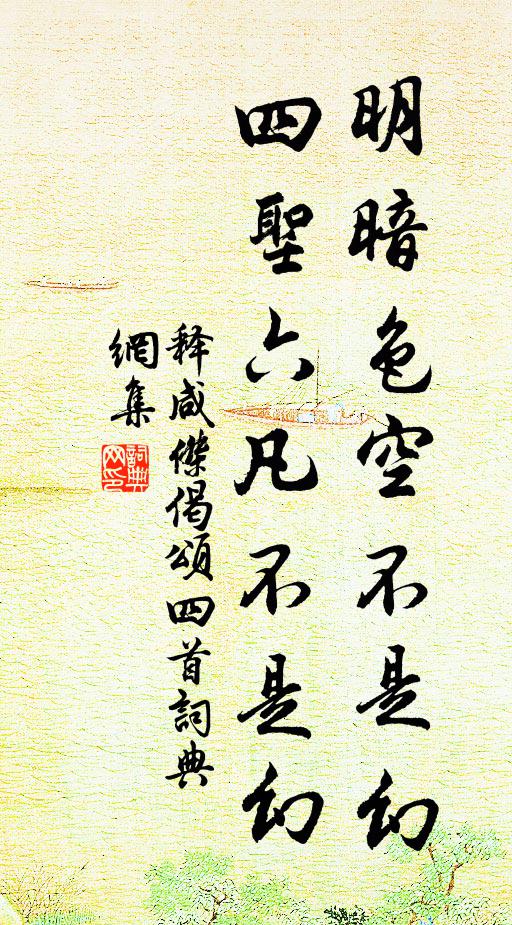 明暗色空不是幻
四聖六凡不是幻
释咸傑偈頌四首詞典
網集
詞典
网印